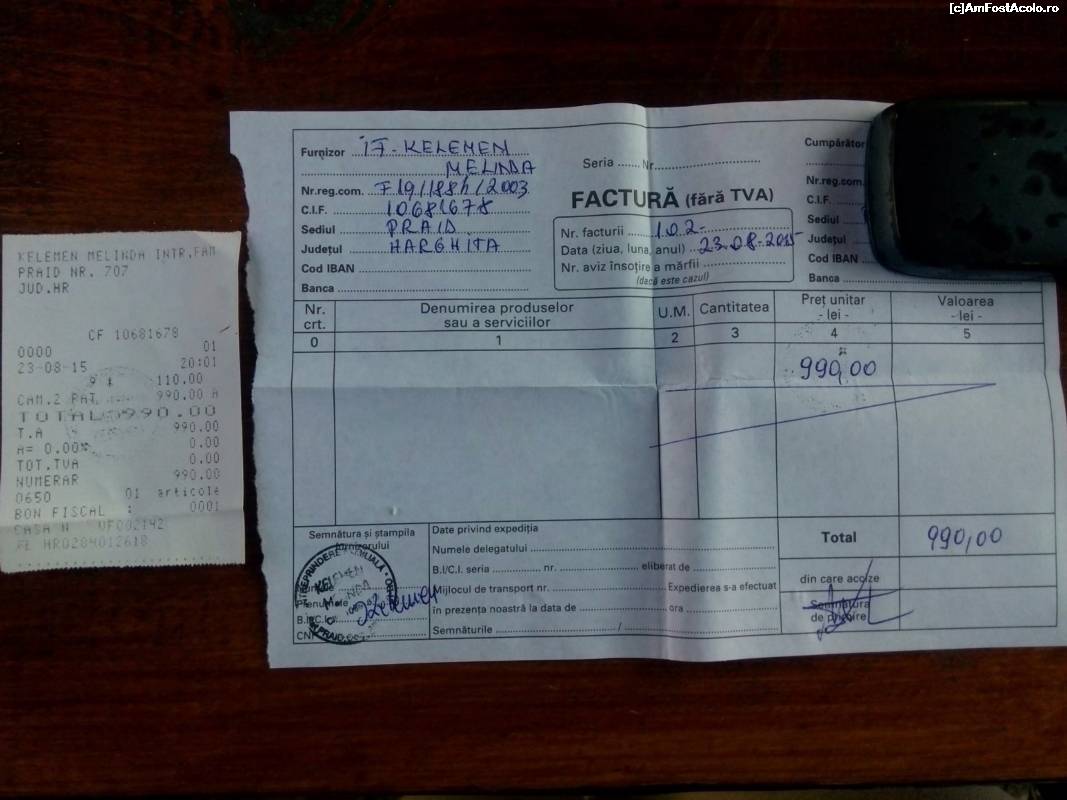 [c]AmFostAcolo.ro
KELEMEN MELINDA INTR.FAM
PRAID NR. 707
JUD.HR
CF 10681678
0000 01
23-08-15 20:01
110.00
CAM.2 PAT 990.00 A
TOTAL 990.00
T.A 990.00
A= 0.00% 0.00
TOT.TVA 0.00
NUMERAR 990.00
0650 01 articole
BON FISCAL : 0001
CASA N VF002142
Furnizor ÎF. KELEMEN
MELINDA
Nr.reg.com. F19/1884/2003
C.I.F. 10681678
Sediul PRAID
Județul HARGHITA
Cod IBAN
Banca
Seria Nr.
FACTURĂ (fără TVA)
Nr. facturii 102
Data (ziua, luna, anul) 23.08.2015
Nr. aviz însoțire a mărfii
(dacă este cazul)
Cumpărător
Nr.reg.com.
C.I.F.
Sediul
Județul
Cod IBAN
Banca
Nr. crt. Denumirea produselor sau a serviciilor U.M. Cantitatea Preț unitar - lei - Valoarea - lei -
0 1 2 3 4 5
990,00
Semnătura și ștampila
furnizorului
KELEMEN
PRAID
Kelemen
B.I/C.I.
CNP
Date privind expediția
Numele delegatului
B.I/C.I. seria nr. eliberat de
Mijlocul de transport nr. Expedierea s-a efectuat
în prezența noastră la data de ora
Semnăturile /
Total 990,00
din care accize
Semnătura
de primire